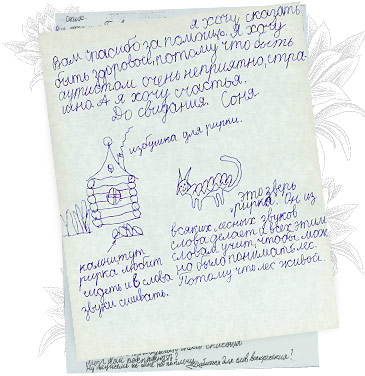 я хочу сказать
Вам "пасибо за помощь. Я хочу
быть здоровой, потому что быть
аутистом очень неприятно, стра-
шно. А я хочу счастья.
До свидания. Соня
избушка для рирки.
это зверь
"рирка". Он из
всяких лесных звуков
слова делает и всех этим
словам учит, чтобы мож
но было понимать лес.
Потому что лес живой.
рирка любит
сидеть и в слова
звуки сшивать.